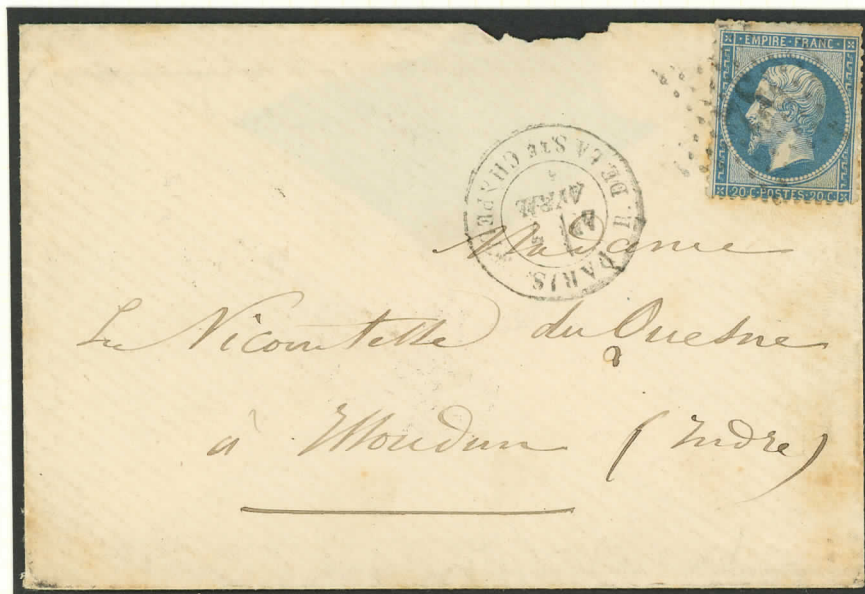 EMPIRE · FRANC ·
20 C · POSTES · 20 C
PARIS
R. DE LA STE CHAPELLE
AVRIL
Madame
La Vicomtesse du Quesne
à Issoudun (Indre)